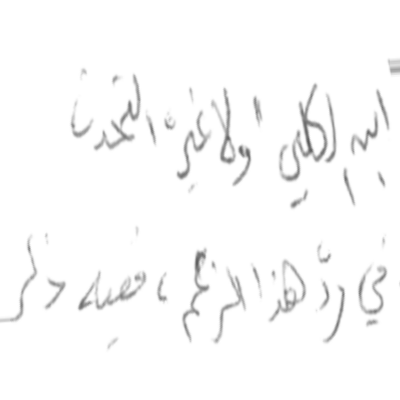 ابن الكلبي ولا غير، التحدث
في ردّ هذا الزعم، ففيه ذكر